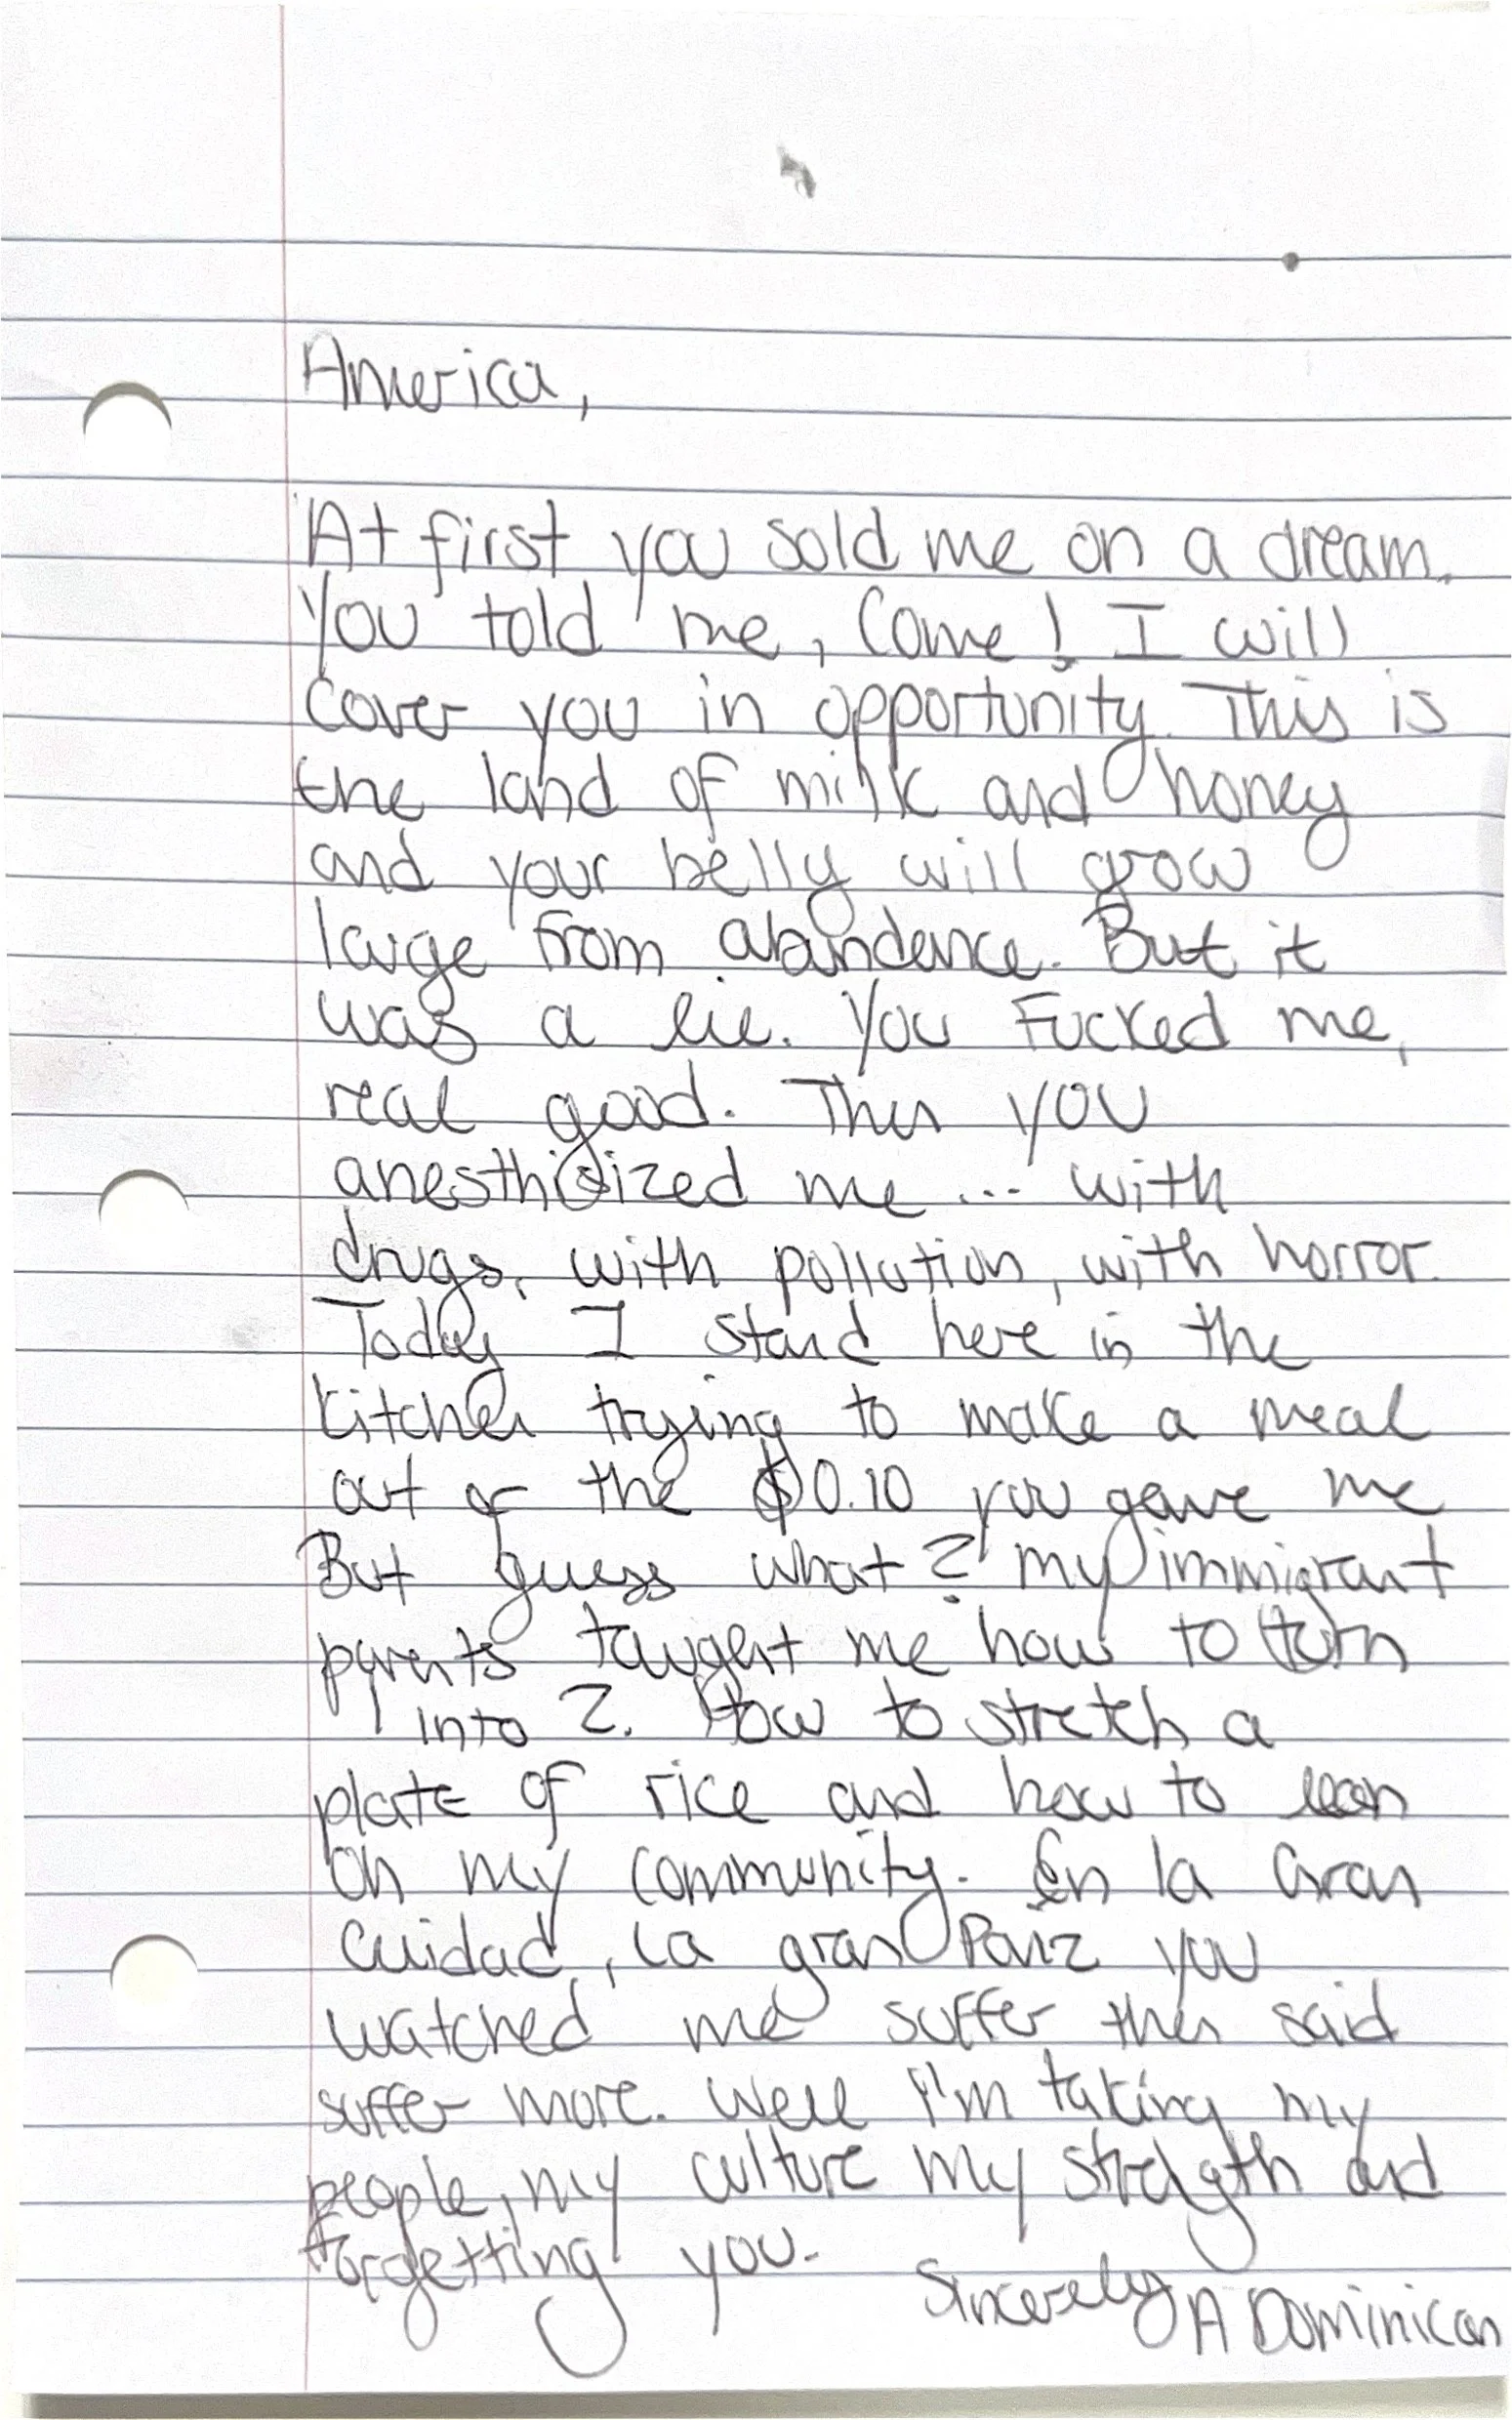 America,
At first you sold me on a dream.
You told me, Come! I will
cover you in opportunity. This is
the land of milk and honey
and your belly will grow
large from abundence. But it
was a lie. You Fucked me,
real good. Then you
anesthisized me ... with
drugs, with pollution, with horror.
Today I stand here in the
kitchen trying to make a meal
out of the $0.10 you gave me
But guess what? my immigrant
parents taught me how to turn
1 into 2. How to stretch a
plate of rice and how to lean
on my community. En la Gran
Cuidad, la gran Paiz you
watched me suffer then said
suffer more. Well I'm taking my
people, my culture my strength and
forgetting you.
Sincerely A Dominican